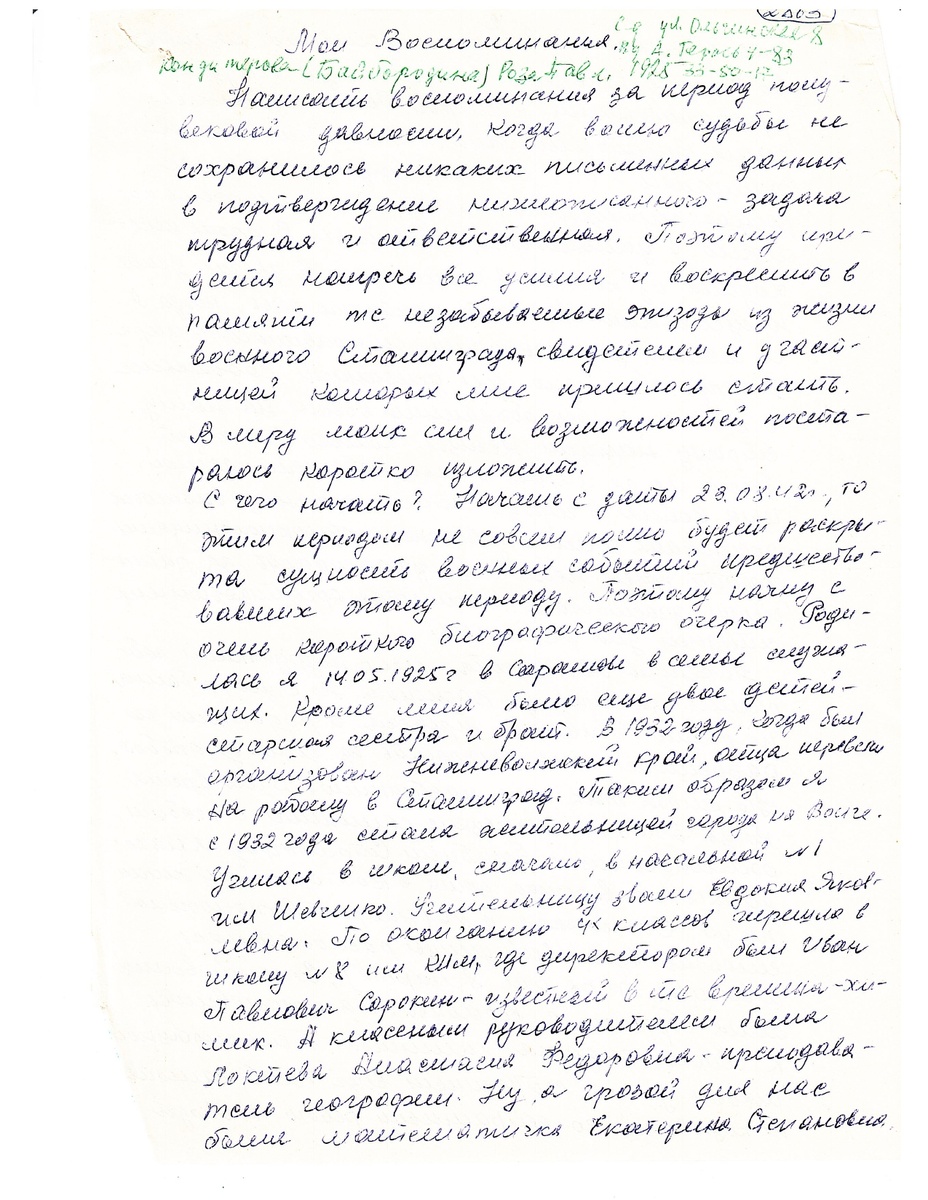 Мои Воспоминания.
ул. Ольгинская 8
Кондитерова (Байбородина) Роза Павл. 1925 33-50-12
Написать воспоминания за период полу-
вековой давности, когда волею судьбы не
сохранилось никаких письменных данных
в подтверждение нижеописанного - задача
трудная и ответственная. Поэтому при-
дется напречь все усилия и воскресить в
памяти те незабываемые эпизоды из жизни
военного Сталинграда, свидетелем и участ-
ницей которых мне пришлось стать.
В меру моих сил и возможностей поста-
ралось коротко изложить.
С чего начать? Начать с даты 23.08.42г., то
этим периодом не совсем полно будет раскры-
та сущность военных событий предшество-
вавших этому периоду. Поэтому начну с
очень короткого биографического очерка. Роди-
лась я 14.05.1925г в Саратове в семье служа-
щих. Кроме меня было еще двое детей -
старшая сестра и брат. В 1932 году, когда был
организован Нижневолжский край, отца перевели
на работу в Сталинград. Таким образом я
с 1932 года стала жительницей города на Волге.
Училась в школе, сначала, в начальной №1
им Шевченко. Учительницу звали Евдокия Яков-
левна. По окончанию 4х классов перешла в
школу №8 им КИМ, где директором был Иван
Павлович Сорокин - известный в те времена - хи-
мик. А классным руководителем была
Локтева Анастасия Федоровна - преподава-
тель географии. Ну, а грозой для нас
была математичка Екатерина Степановна,